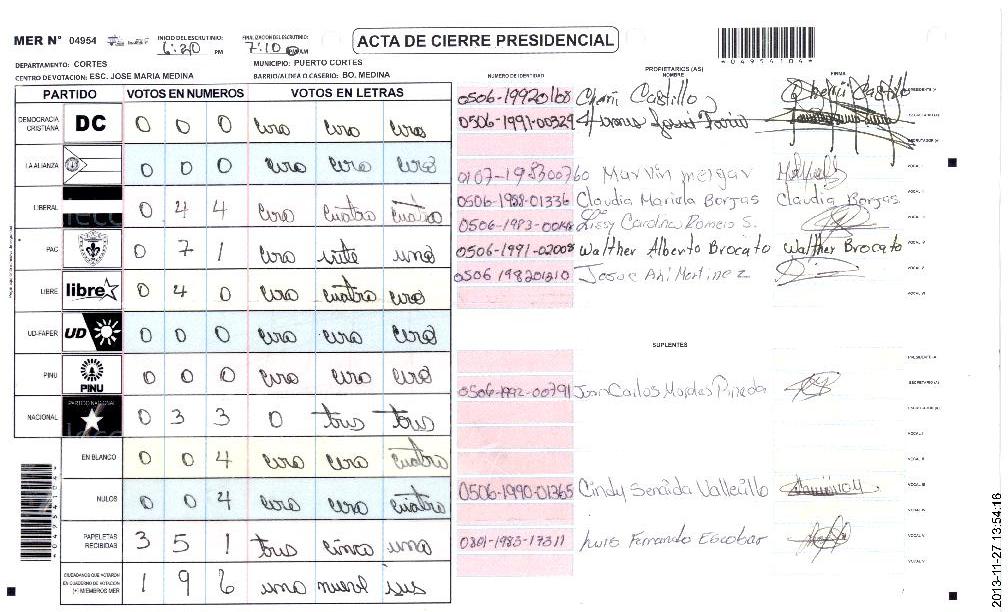 MER Nº 04954 INICIO DEL ESCRUTINIO: 6:20 PM FINALIZACION DE ESCRUTINIO: 7:10
ACTA DE CIERRE PRESIDENCIAL
*04954104*
DEPARTAMENTO: CORTES MUNICIPIO: PUERTO CORTES
CENTRO DE VOTACION: ESC. JOSE MARIA MEDINA BARRIO/ALDEA O CASERIO: BO. MEDINA
PARTIDO VOTOS EN NUMEROS VOTOS EN LETRAS
DEMOCRACIA CRISTIANA DC 0 0 0 cero cero cero
LA ALIANZA 0 0 0 cero cero cero
LIBERAL 0 4 4 cero cuatro cuatro
PAC 0 7 1 cero siete uno
LIBRE libre 0 4 0 cero cuatro cero
UD-FAPER UD 0 0 0 cero cero cero
PINU PINU 0 0 0 cero cero cero
NACIONAL PARTIDO NACIONAL 0 3 3 0 tres tres
EN BLANCO 0 0 4 cero cero cuatro
NULOS 0 0 4 cero cero cuatro
PAPELETAS RECIBIDAS 3 5 1 tres cinco uno
CIUDADANOS QUE VOTARON EN CUADERNO DE VOTACION (+) MIEMBROS MER 1 9 6 uno nueve seis
NUMERO DE IDENTIDAD PROPIETARIOS (AS) NOMBRE FIRMA
0506-1992 Castillo Castillo PRESIDENTE (A)
0506-1991-00329 SECRETARIO (A)
ESCRUTADOR (A)
0107-1983 00760 Marvin melgar VOCAL I
0506-1988-01336 Claudia Mariela Borjas Claudia Borjas VOCAL II
0506-1983- Carolina Romero S.
0506-1991-02008 Walther Alberto Brocato Walther Brocato
0506 198201310 Josue Martinez VOCAL V
VOCAL VI
SUPLENTES
PRESIDENTE (A)
0506-1992-00791 Juan Carlos Morales Pineda SECRETARIO (A)
ESCRUTADOR (A)
VOCAL I
VOCAL II
0506-1990-01365 Cindy Senaida Vallecillo VOCAL III
VOCAL IV
0801-1983-17311 Luis Fernando Escobar VOCAL V
VOCAL VI
*04954104*
2013-11-27 13:54:16